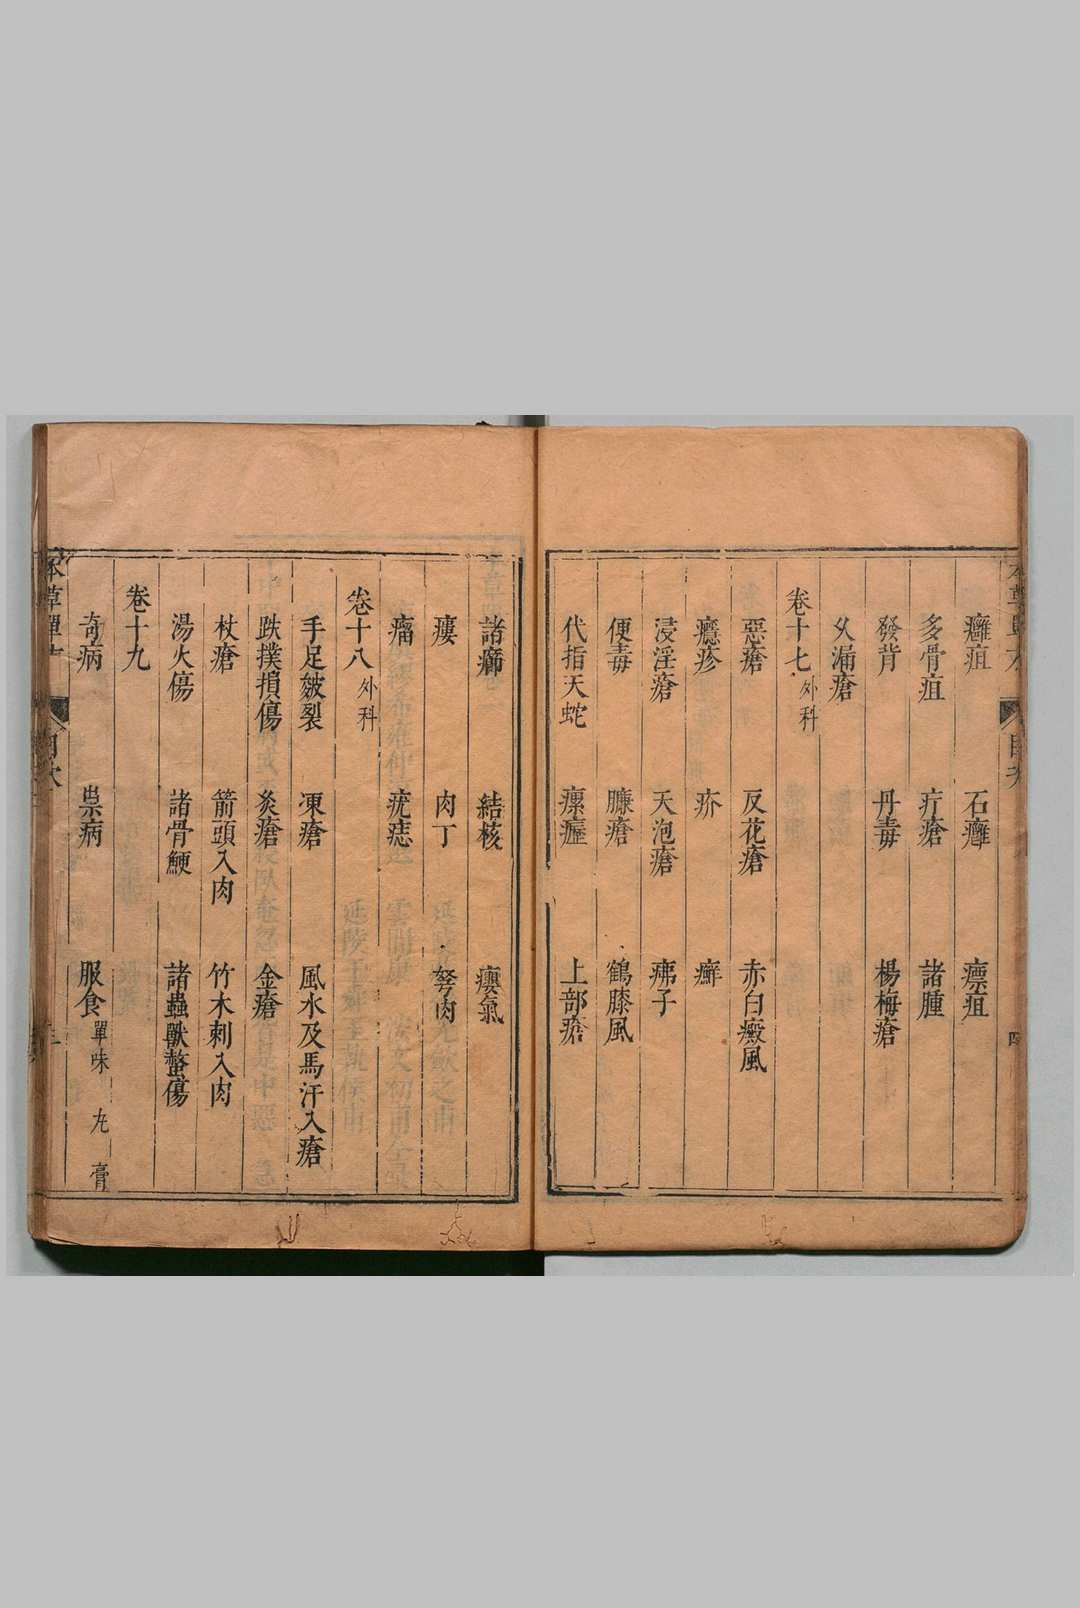 癰疽 石癰 瘭疽
多骨疽 疔瘡 諸腫
發背 丹毒 楊梅瘡
久漏瘡
卷十七 外科
惡瘡 反花瘡 赤白癜風
癮疹 疥 癬
浸淫瘡 天泡瘡 疿子
便毒 臁瘡 鶴膝風
代指天蛇 瘰癧 上部瘡
諸癤 結核 癭氣
瘻 肉丁 努肉
瘤 疣痣
卷十八 外科
手足皴裂 凍瘡 風水及馬汗入瘡
跌撲損傷 灸瘡 金瘡
杖瘡 箭頭入肉 竹木刺入肉
湯火傷 諸骨鯁 諸蟲獸螫傷
卷十九
奇病 祟病 服食 單味 丸 膏
本草單方 目次